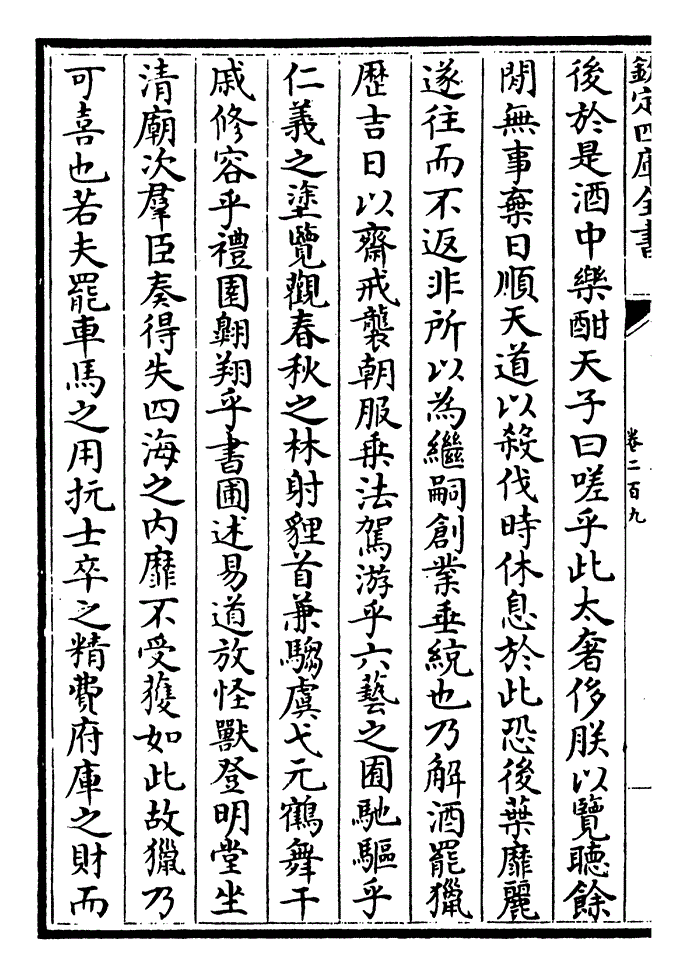 欽定四庫全書
卷二百九
後於是酒中樂酣天子曰嗟乎此太奢侈朕以覽聽餘
閒無事棄日順天道以殺伐時休息於此恐後葉靡麗
遂往而不返非所以為繼嗣創業垂統也乃解酒罷獵
歴吉日以齋戒襲朝服乗法駕游乎六藝之囿馳驅乎
仁義之塗覽觀春秋之林射貍首兼騶虞弋元鶴舞干
戚修容乎禮園翺翔乎書圃述易道放怪獸登明堂坐
清廟次羣臣奏得失四海之内靡不受獲如此故獵乃
可喜也若夫罷車馬之用抏士卒之精費府庫之財而